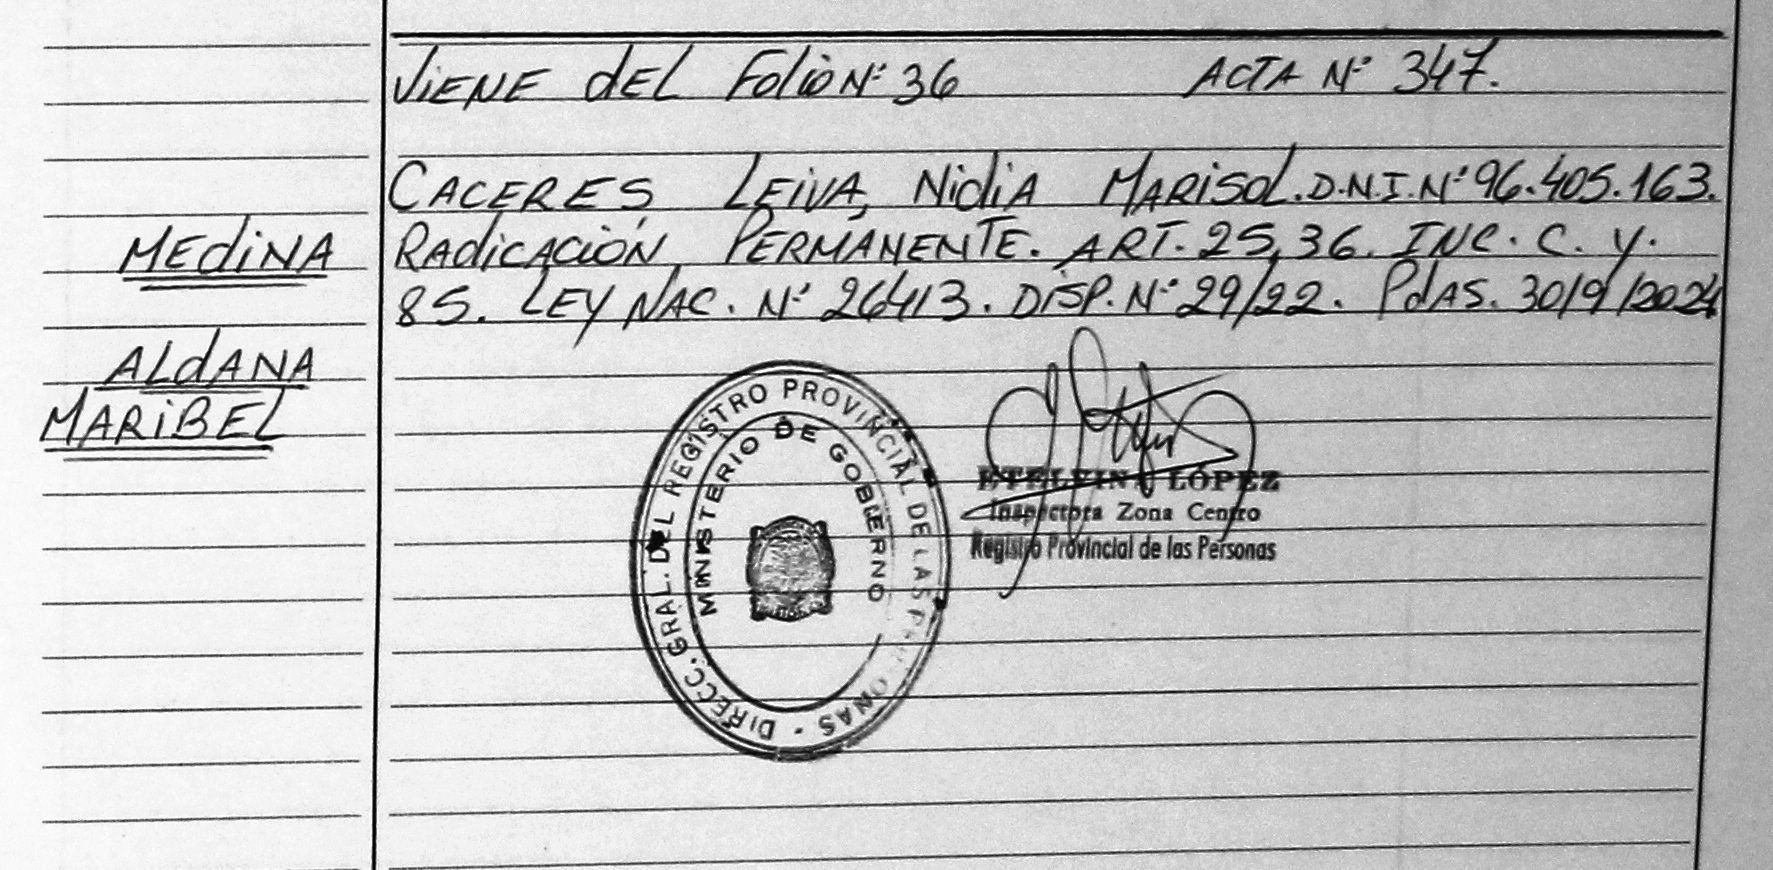 VIENE DEL Folio Nº 36 ACTA Nº 347.
CACERES, LEIVA, NIDIA MARISOL. D.N.I. Nº 96.405.163.
MEDINA
RADICACIÓN PERMANENTE. ART. 25, 36. INC. C. Y.
85. LEY NAC. Nº 26413. DISP. Nº 29/22. PDAS. 30/9/2024
ALDANA
MARIBEL
DIRECC. GRAL. DEL REGISTRO PROVINCIAL DE LAS PERSONAS -
MINISTERIO DE GOBIERNO
ETELVINA LÓPEZ
Inspectora Zona Centro
Registro Provincial de las Personas